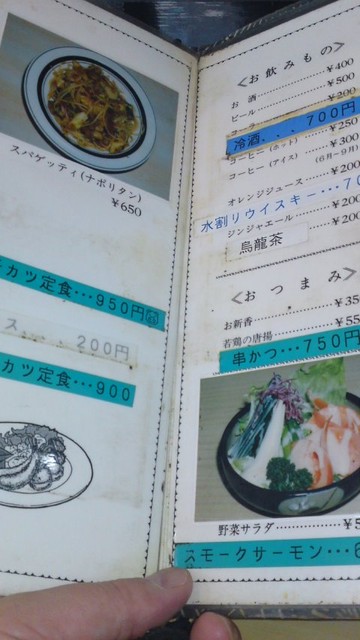 スパゲッティ(ナポリタン)
¥650
カツ定食…950円
ス、、、200円
カツ定食…900
<お飲みもの>
お酒………¥400
ビール………¥500
¥200
冷酒、、、700円
コーヒー(ホット)………¥250
コーヒー(アイス)………¥300
(6月~9月)
オレンジジュース………¥200
水割りウイスキー…70
ジンジャエール………¥200
烏龍茶
¥200
<おつまみ>
お新香………¥35
若鶏の唐揚………¥55
串かつ…750円
野菜サラダ………¥5
スモークサーモン…6